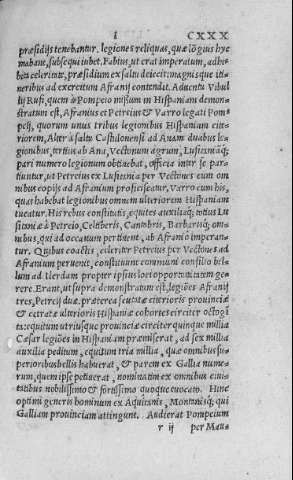 I CXXX
præsidijs tenebantur, legiones reliquas, quæ lõgius hye
mabant, subsequi iubet. Fabius, ut erat imperatum, adhi
bita celeritate, præsidium ex saltu deiecit: magnisque iti
neribus ad exercitum Afranij contendit. Aduentu Vibul
lij Rufi, quem à Pompeio missum in Hispaniam demon
stratum est, Afranius et Petreius & Varro legati Pom
peij, quorum unus tribus legionibus Hispaniam citeriorem,
Alter à saltu Castulonensi ad Anam duabus le
gionibus, tertius ab Ana, Vectonum agrum, Lusitaniãq;
pari numero legionum obtinebat, officia inter se par
tiuntur, ut Petreius ex Lusitania per Vectones cum om
nibus copijs ad Afranium proficiscatur, Varro cum his,
quas habebat legionibus omnem ulteriorem Hispaniam
tueatur. His rebus constitutis, equites auxiliaq; totius Lu
sitaniæ à Petreio, Celtiberis, Cantabris, Barbarisq; om
nibus, qui ad oceanum pertinent, ab Afranio imperan
tur. Quibus coactis, celeriter Petreius per Vectones ad
Afranium peruenit, constituunt communi consilio bellum
ad Ilerdam propter ipsius loci opportunitatem ge
rere. Erant, ut supra demonstratum est, legiões Afranij
tres, Petreij duæ, præterea scutatæ citerioris prouinciæ
& cetratæ ulterioris Hispaniæ cohortes circiter octogin
ta: equitum utriusque prouinciæ circiter quinque millia
Cæsar legiões in Hispaniam præmiserat, ad sex millia
auxilia peditum, equitum tria millia, quæ omnibus su
perioribus bellis habuerat, & parem ex Gallia nume
rum, quem ipse petiuerat, nominatim ex omnibus ciui
tatibus nobilissimo & fortissimo quoque euocato. Hinc
optimi generis hominum ex Aquitanis, Montanisq; qui
Galliam prouinciam attingunt. Audierat Pompeium
r ij per Mau=